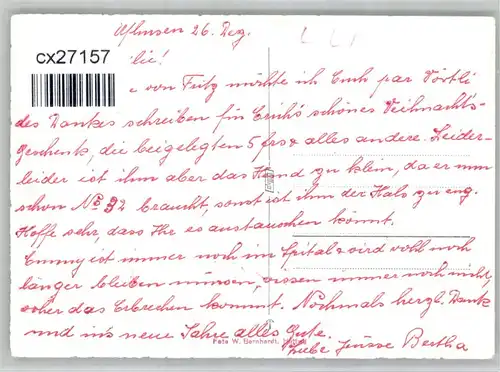 26. Dez.
cx27157
von Fritz möchte ich Euch par Wörtli
des Dankes schreiben für Erich's schönes Weihnacht's-
geschenk, die beigelegten 5 frs & alles andere. Leider
leider ist ihm aber das Hemd zu klein, da er nun
schon No 32 braucht, sonst ist ihm der Hals zu eng.
Hoffe sehr, dass Ihr es austauschen könnt.
Emmy ist immer noch im Spital & wird wohl noch
länger bleiben müssen, wissen immer noch nicht,
woher das Erbrechen kommt. Nochmals herzl. Dank
und in's neue Jahr alles Gute.
Liebe Grüsse Bertha
Foto W. Bernhardt,